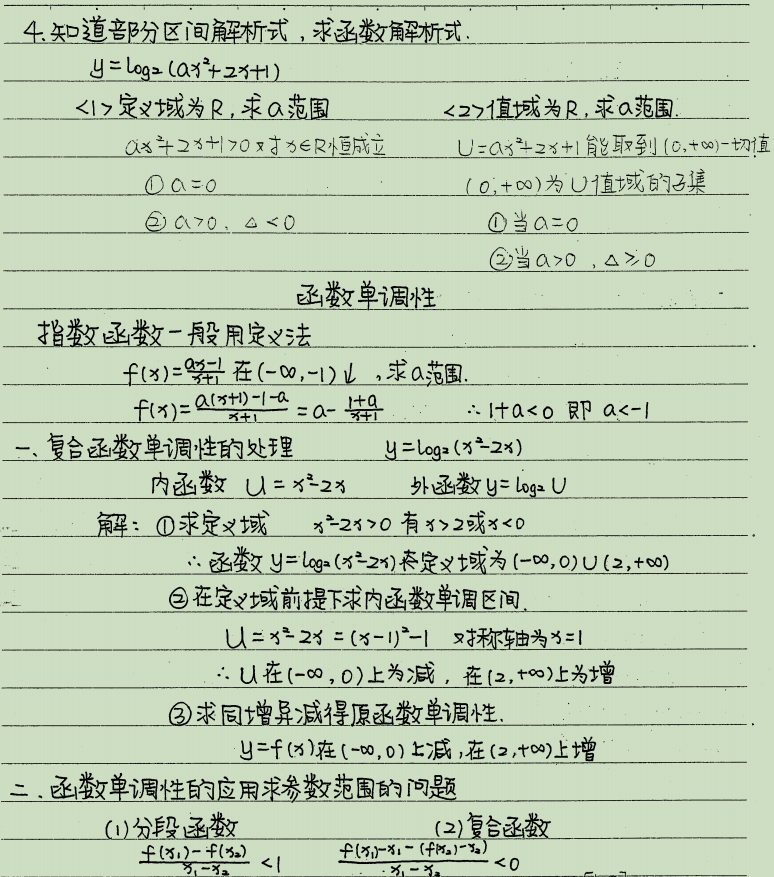 4.知道部分区间解析式，求函数解析式.
y=log₂(ax²+2x+1)
<1>定义域为R,求a范围 <2>值域为R,求a范围.
ax²+2x+1>0对x∈R恒成立 U=ax²+2x+1能取到(0,+∞)一切值
①a=0 (0,+∞)为U值域的子集
②a>0, △<0 ①当a=0
②当a>0, △≥0
函数单调性
指数函数一般用定义法
f(x)=\frac{ax-1}{x+1}在(-∞,-1)↓,求a范围.
f(x)=\frac{a(x+1)-1-a}{x+1}=a-\frac{1+a}{x+1} ∴1+a<0 即 a<-1
一、复合函数单调性的处理 y=log₂(x²-2x)
内函数 U=x²-2x 外函数y=log₂U
解：①求定义域 x²-2x>0 有x>2或x<0
∴函数y=log₂(x²-2x)定义域为(-∞,0)∪(2,+∞)
②在定义域前提下求内函数单调区间.
U=x²-2x=(x-1)²-1 对称轴为x=1
∴U在(-∞,0)上为减,在(2,+∞)上为增
③求同增异减得原函数单调性.
y=f(x)在(-∞,0)上减,在(2,+∞)上增
二、函数单调性的应用求参数范围的问题
(1)分段函数 (2)复合函数
\frac{f(x₁)-f(x₂)}{x₁-x₂}<1 \frac{f(x₁)-x₁-(f(x₂)-x₂)}{x₁-x₂}<0